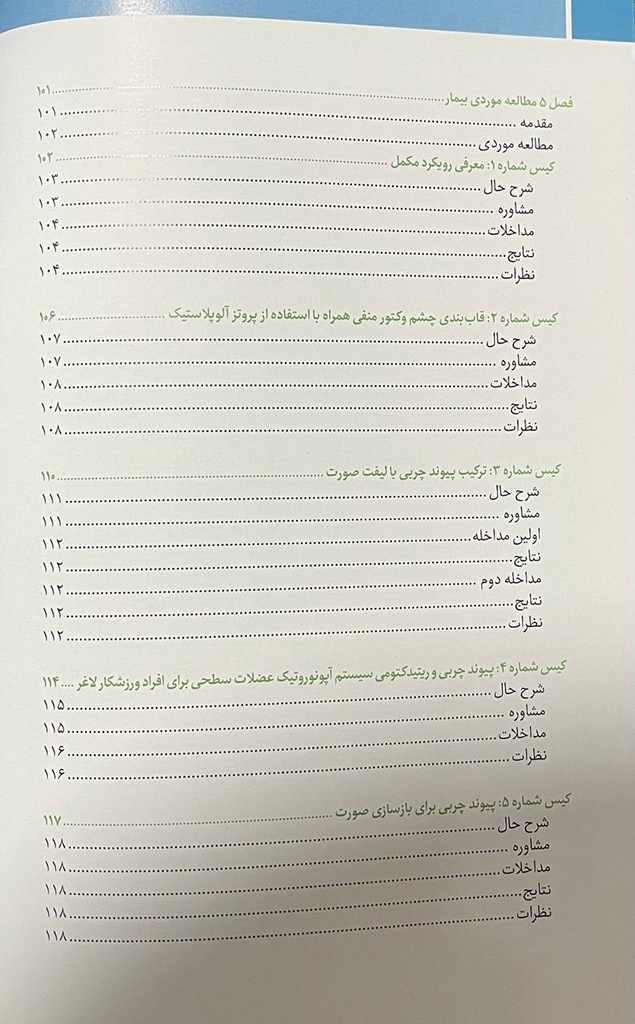 فصل ۵ مطالعه موردی بیمار ........ ۱۰۱
مقدمه ........ ۱۰۱
مطالعه موردی ........ ۱۰۲
کیس شماره ۱: معرفی رویکرد مکمل ........ ۱۰۲
شرح حال ........ ۱۰۳
مشاوره ........ ۱۰۳
مداخلات ........ ۱۰۴
نتایج ........ ۱۰۴
نظرات ........ ۱۰۴
کیس شماره ۲: قاب‌بندی چشم وکتور منفی همراه با استفاده از پروتز آلوپلاستیک ........ ۱۰۶
شرح حال ........ ۱۰۷
مشاوره ........ ۱۰۷
مداخلات ........ ۱۰۸
نتایج ........ ۱۰۸
نظرات ........ ۱۰۸
کیس شماره ۳: ترکیب پیوند چربی با لیفت صورت ........ ۱۱۰
شرح حال ........ ۱۱۱
مشاوره ........ ۱۱۱
اولین مداخله ........ ۱۱۲
نتایج ........ ۱۱۲
مداخله دوم ........ ۱۱۲
نتایج ........ ۱۱۲
نظرات ........ ۱۱۲
کیس شماره ۴: پیوند چربی و ریتیدکتومی سیستم آپونوروتیک عضلات سطحی برای افراد ورزشکار لاغر .... ۱۱۴
شرح حال ........ ۱۱۵
مشاوره ........ ۱۱۵
مداخلات ........ ۱۱۶
نظرات ........ ۱۱۶
کیس شماره ۵: پیوند چربی برای بازسازی صورت ........ ۱۱۷
شرح حال ........ ۱۱۸
مشاوره ........ ۱۱۸
مداخلات ........ ۱۱۸
نتایج ........ ۱۱۸
نظرات ........ ۱۱۸